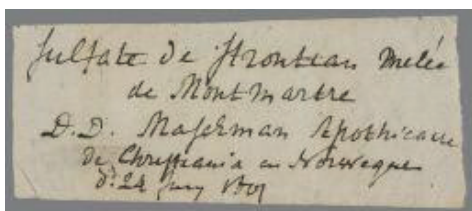 Sulfate de Strontian melée
de Montmartre
D.D. Maserman Apothicaire
de Christiania en Norwegue
d. 24 Juny 1801